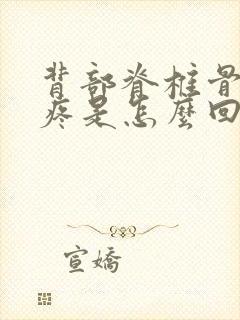 背部脊柱骨
疼是怎麼回
宣嬌